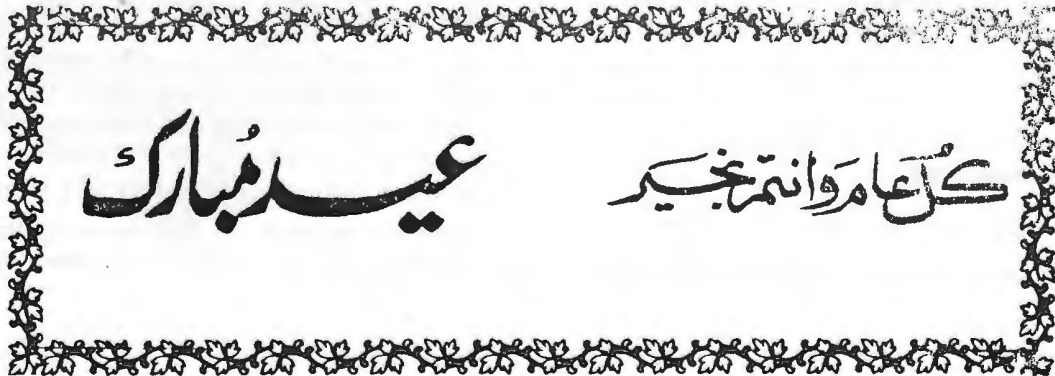 كُل عَام وَانتم بخَير
عيد مُبارك